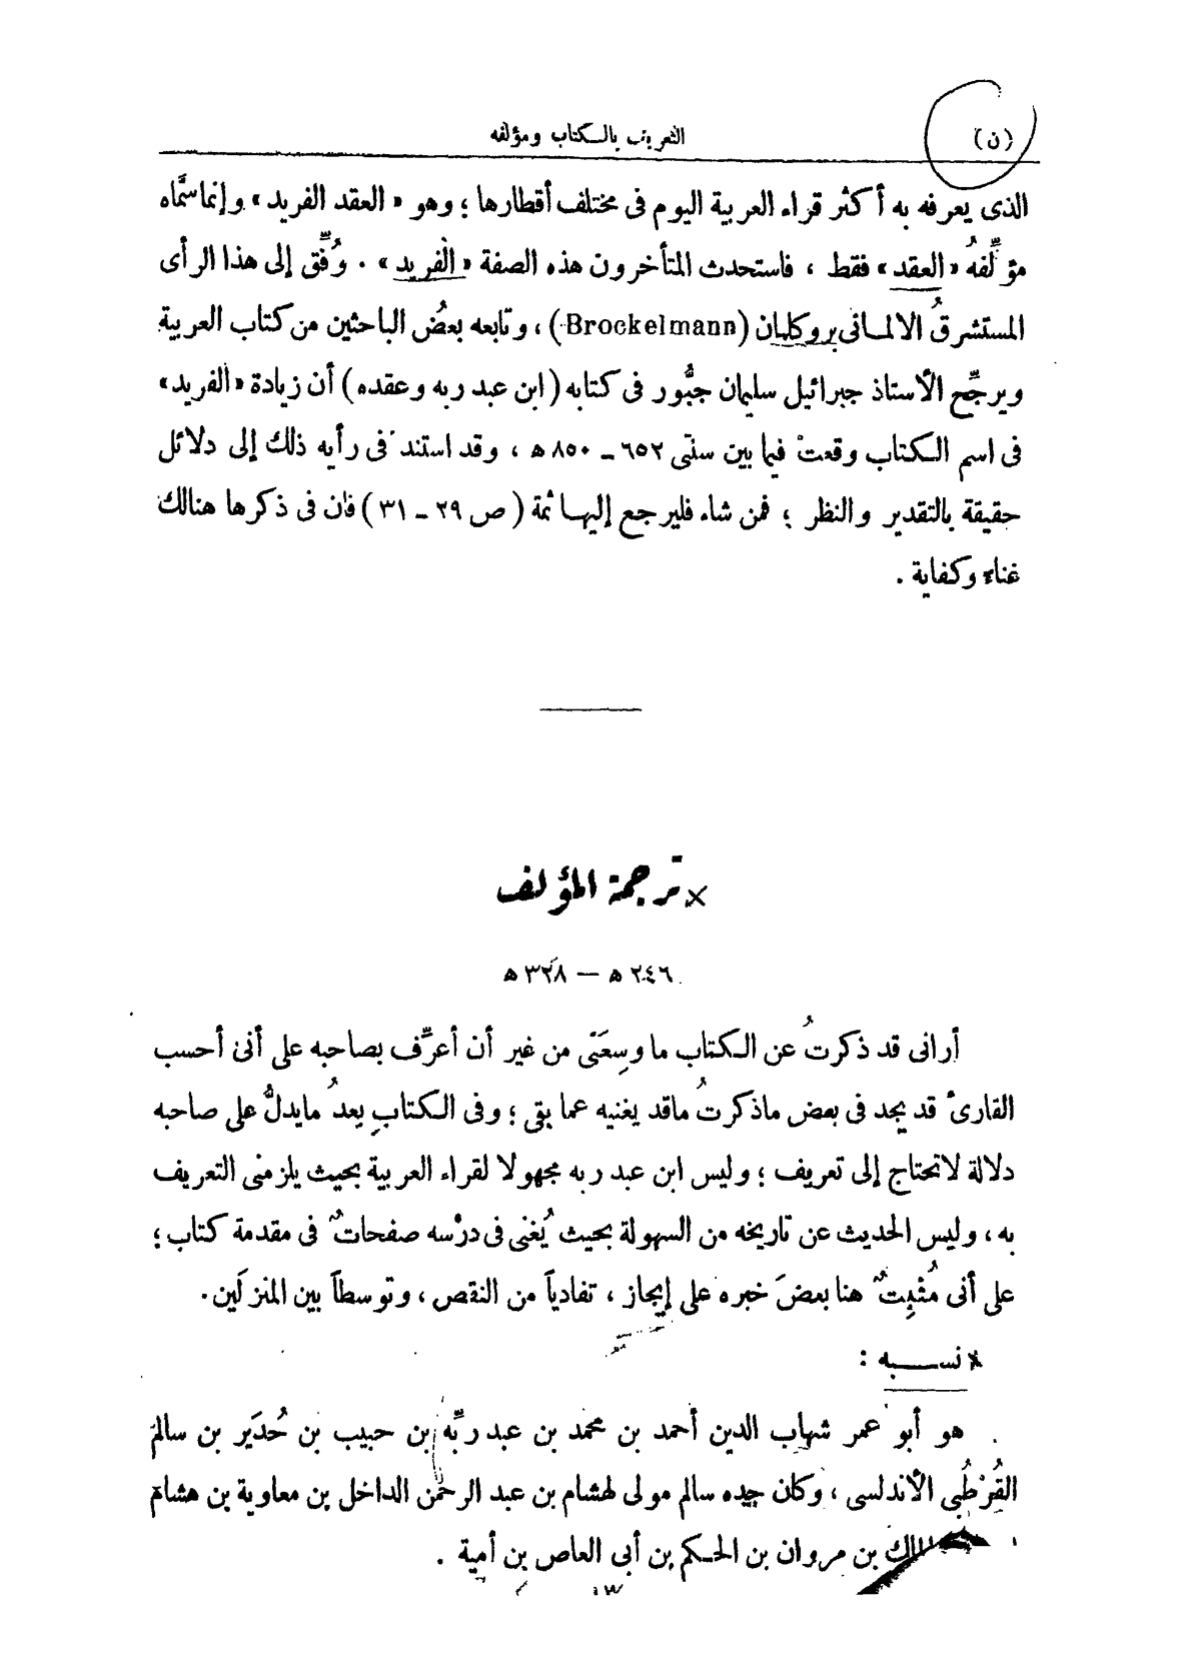 (ن)
التعريف بالكتاب ومؤلفه
الذى يعرفه به أكثر قراء العربية اليوم فى مختلف أقطارها ؛ وهو « العقد الفريد » وإنما سمَّاه
مؤلِّفهُ « العقد » فقط ، فاستحدث المتأخرون هذه الصفة « الفريد » . وُفِّق إلى هذا الرأى
المستشرقُ الالمانى بروكلمان (Brockelmann) ، وتابعه بعضُ الباحثين من كتاب العربية
ويرجِّح الأستاذ جبرائيل سليمان جبُّور فى كتابه ( ابن عبد ربه وعقده ) أن زيادة « الفريد »
فى اسم الكتاب وقعتْ فيما بين سنتى ٦٥٢ ـ ٨٥٠ ه ، وقد استند فى رأيه ذلك إلى دلائل
حقيقة بالتقدير والنظر ؛ فمن شاء فليرجع إليها ثمة ( ص ٢٩ ـ ٣١ ) فان فى ذكرها هنالك
غناء وكفاية .
ترجمة المؤلف
٢٤٦ ه — ٣٢٨ ه
أرانى قد ذكرتُ عن الكتاب ما وسِعَنى من غير أن أعرِّف بصاحبه على أنى أحسب
القارئ قد يجد فى بعض ماذكرتُ ماقد يغنيه عما بقى ؛ وفى الكتابِ بعدُ مايدلُّ على صاحبه
دلالة لاتحتاج إلى تعريف ؛ وليس ابن عبد ربه مجهولا لقراء العربية بحيث يلزمنى التعريف
به ، وليس الحديث عن تاريخه من السهولة بحيث يُغنى فى درْسه صفحاتٌ فى مقدمة كتاب ؛
على أنى مُثبِتٌ هنا بعضَ خبره على إيجاز ، تفادياً من النقص ، وتوسطاً بين المنزلَين .
* نســـبه :
هو أبو عمر شهاب الدين أحمد بن محمد بن عبد ربِّه بن حبيب بن حُدَير بن سالم
القُرْطُبى الأندلسى ، وكان جده سالم مولى لهشام بن عبد الرحمن الداخل بن معاوية بن هشام
بن مروان بن الحكم بن أبى العاص بن أمية .